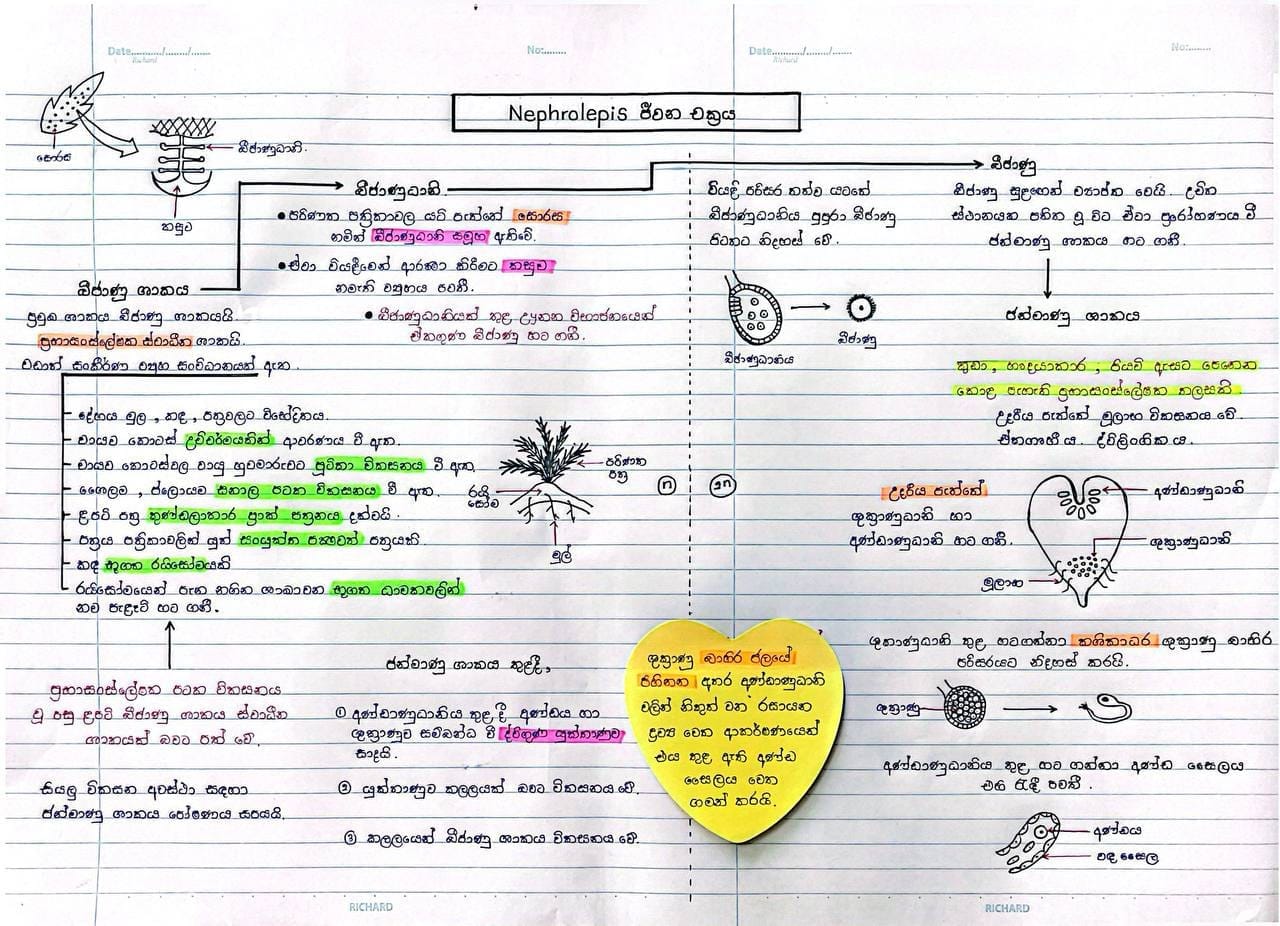 Date........./......../.......
Richard
No:........
Date........./......../.......
Richard
No:........
Nephrolepis ජීවන චක්‍රය
සොරස
බීජාණුධානි.
කසුව
බීජාණු ශාකය
ප්‍රමුඛ ශාකය බීජාණු ශාකයයි.
ප්‍රභාසංස්ලේෂක ස්වාධීන ශාකයි.
වඩාත් සංකීර්ණ ව්‍යුහ සංවිධානයක් ඇත.
දේහය මුල, කඳ, පත්‍රවලට විභේදිතය.
වායව කොටස් උච්චර්මයකින් ආවරණය වී ඇත.
වායව කොටස්වල වායු හුවමාරුවට පූටිකා විකසනය වී ඇත.
ශෛලම, ප්ලොයම සනාල පටක විකසනය වී ඇත.
ළපටි පත්‍ර කුණ්ඩලාකාර ප්‍රාක් පත්‍රනය දක්වයි.
පත්‍රය පත්‍රිකාවලින් යුත් සංයුක්ත පක්ෂවත් පත්‍රයකි.
කඳ භූගත රයිසෝමයකි
රයිසෝමයෙන් පැන නගින ශාඛාවන භූගත ධාවකවලින්
නව පැළෑටි හට ගනී.
බීජාණුධානි
● පරිණත පත්‍රිකාවල යටි පැත්තේ සොරස
නමින් බීජාණුධානි සමූහ ඇතිවේ.
● ඒවා වියළීමෙන් ආරක්‍ෂා කිරීමට කසුව
නමැති ව්‍යුහය පවතී.
● බීජාණුධානියක් තුළ ඌනන විභාජනයෙන්
ඒකගුණ බීජාණු හට ගනී.
පරිණත
පත්‍ර
රයි
සෝම
මුල්
n
2n
වියළි පරිසර තත්ව යටතේ
බීජාණුධානිය පුපුරා බීජාණු
පිටතට නිදහස් වේ.
බීජාණුධානිය
බීජාණු
බීජාණු
බීජාණු සුළඟෙන් ව්‍යාප්ත වෙයි. උචිත
ස්ථානයක පතිත වූ විට ඒවා ප්‍රරෝහණය වී
ජන්මාණු ශාකය හට ගනී.
ජන්මාණු ශාකය
කුඩා, හෘදයාකාර, පියවි ඇසට පෙනෙන
කොළ පැහැති ප්‍රභාසංස්ලේෂක තලසකි.
උදරීය පැත්තේ මූලාභ විකසනය වේ.
ඒකගෘහී ය. ද්විලිංගික ය.
උදරීය පැත්තේ
ශුක්‍රාණුධානි හා
අණ්ඩාණුධානි හට ගනී.
අණ්ඩාණුධානි
ශුක්‍රාණුධානි
මූලාභ
ශුකාණුධානි තුළ හටගන්නා කශිකාධර ශුක්‍රාණු බාහිර
පරිසරයට නිදහස් කරයි.
ශුක්‍රාණු
අණ්ඩාණුධානිය තුළ හට ගන්නා අණ්ඩ සෛලය
එහි රැඳී පවතී.
අණ්ඩය
වඳ සෛල
ශුක්‍රාණු බාහිර ජලයේ
පිහිනන අතර අණ්ඩාණුධානි
වලින් නිකුත් වන රසායන
ද්‍රව්‍ය වෙත ආකර්ෂණයෙන්
එය තුළ ඇති අණ්ඩ
සෛලය වෙත
ගමන් කරයි.
ජන්මාණු ශාකය තුළදී,
① අණ්ඩාණුධානිය තුළ දී අණ්ඩය හා
ශුක්‍රාණුව සම්බන්ධ වී ද්විගුණ යුක්තාණුව
සාදයි.
② යුක්තාණුව කලලයක් බවට විකසනය වේ.
③ කලලයෙන් බීජාණු ශාකය විකසනය වේ.
ප්‍රභාසංස්ලේෂක පටක විකසනය
වූ පසු ළපටි බීජාණු ශාකය ස්වාධීන
ශාකයක් බවට පත් වේ.
සියලු විකසන අවස්ථා සඳහා
ජන්මාණු ශාකය පෝෂණය සපයයි.
RICHARD
RICHARD